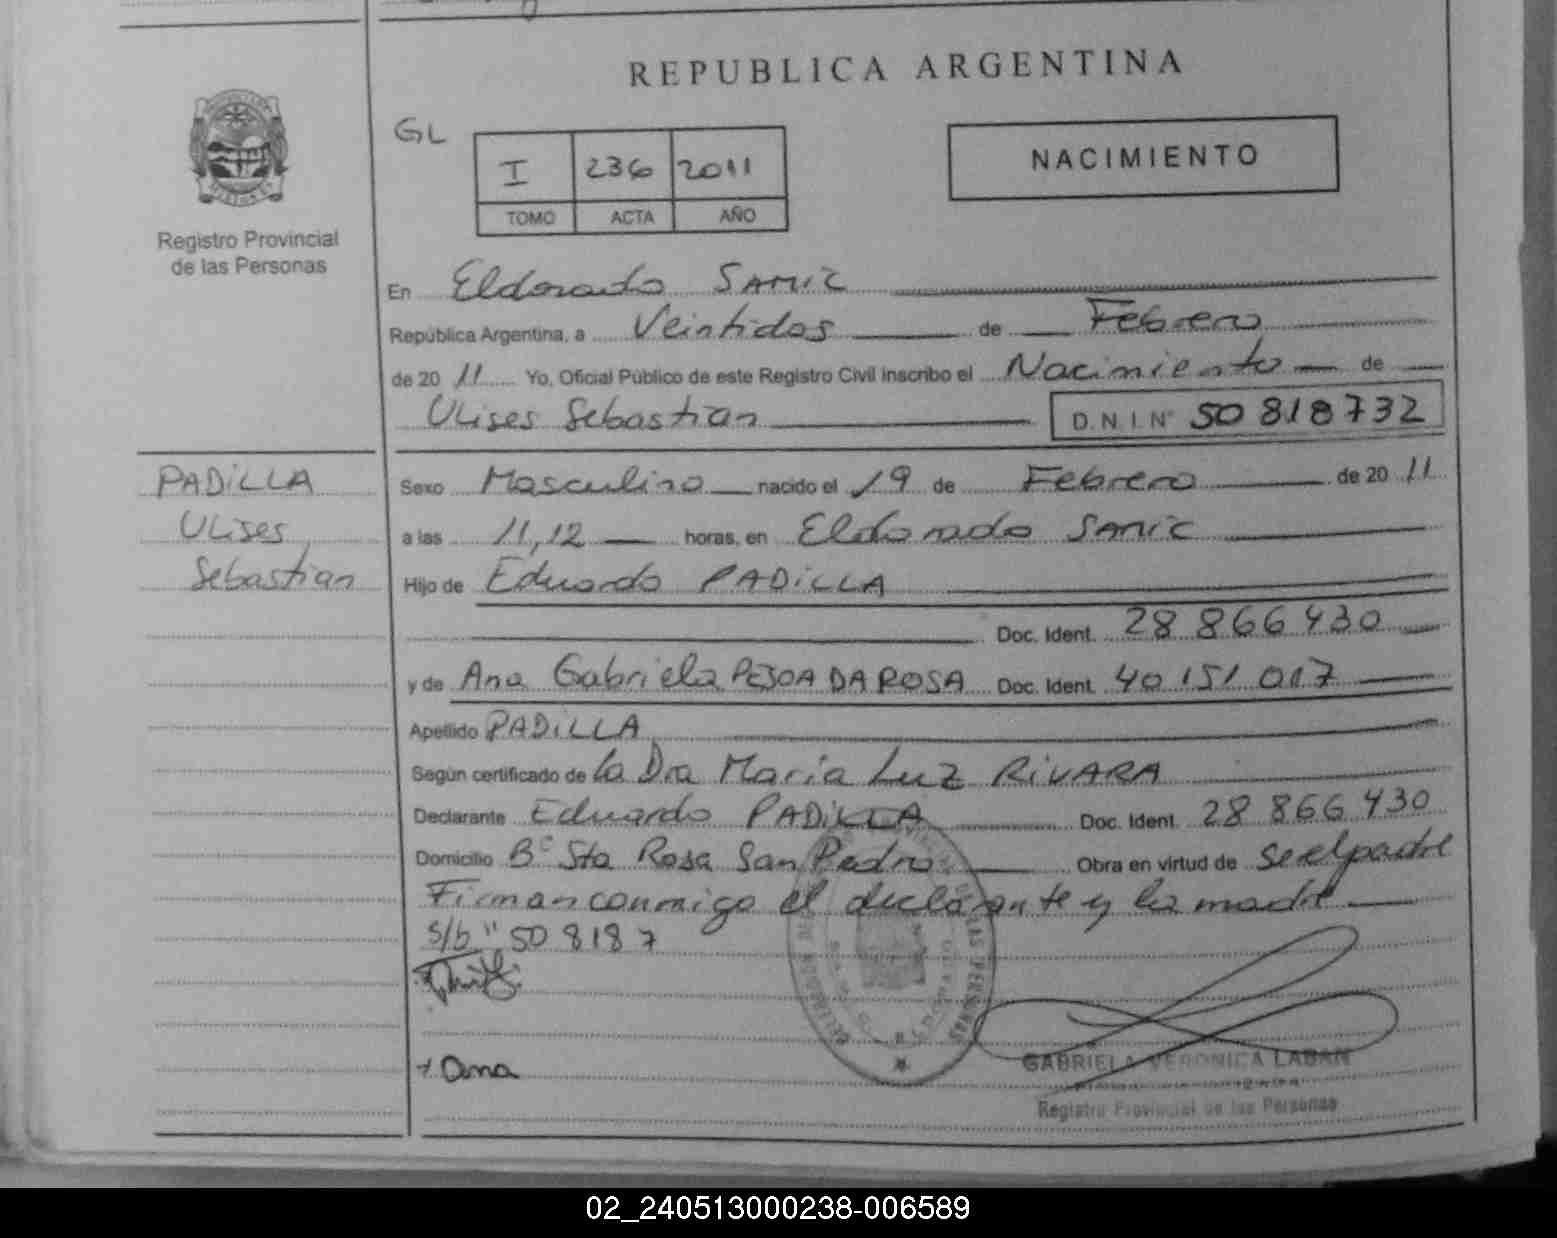 REPUBLICA ARGENTINA
GL
I 236 2011
TOMO ACTA AÑO
NACIMIENTO
Registro Provincial
de las Personas
En Eldorado SAMIC
República Argentina, a Veintidos de Febrero
de 20 11 Yo, Oficial Público de este Registro Civil inscribo el Nacimiento de
Ulises Sebastian D.N.I. N° 50 818732
PADILLA
Ulises
Sebastian
Sexo Masculino nacido el 19 de Febrero de 20 11
a las 11,12 horas, en Eldorado SAMIC
Hijo de Eduardo PADILLA
Doc. Ident. 28 866 430
y de Ana Gabriela PESOA DA ROSA Doc. Ident. 40 151 017
Apellido PADILLA
Según certificado de la Dra Maria Luz RIVARA
Declarante Eduardo PADILLA Doc. Ident. 28 866 430
Domicilio B° Sta Rosa San Pedro Obra en virtud de ser el padre
Firman conmigo el declarante y la madre
s/b "50 8187
Ana
GABRIELA VERONICA LABAN
Registro Provincial de las Personas
02_240513000238-006589